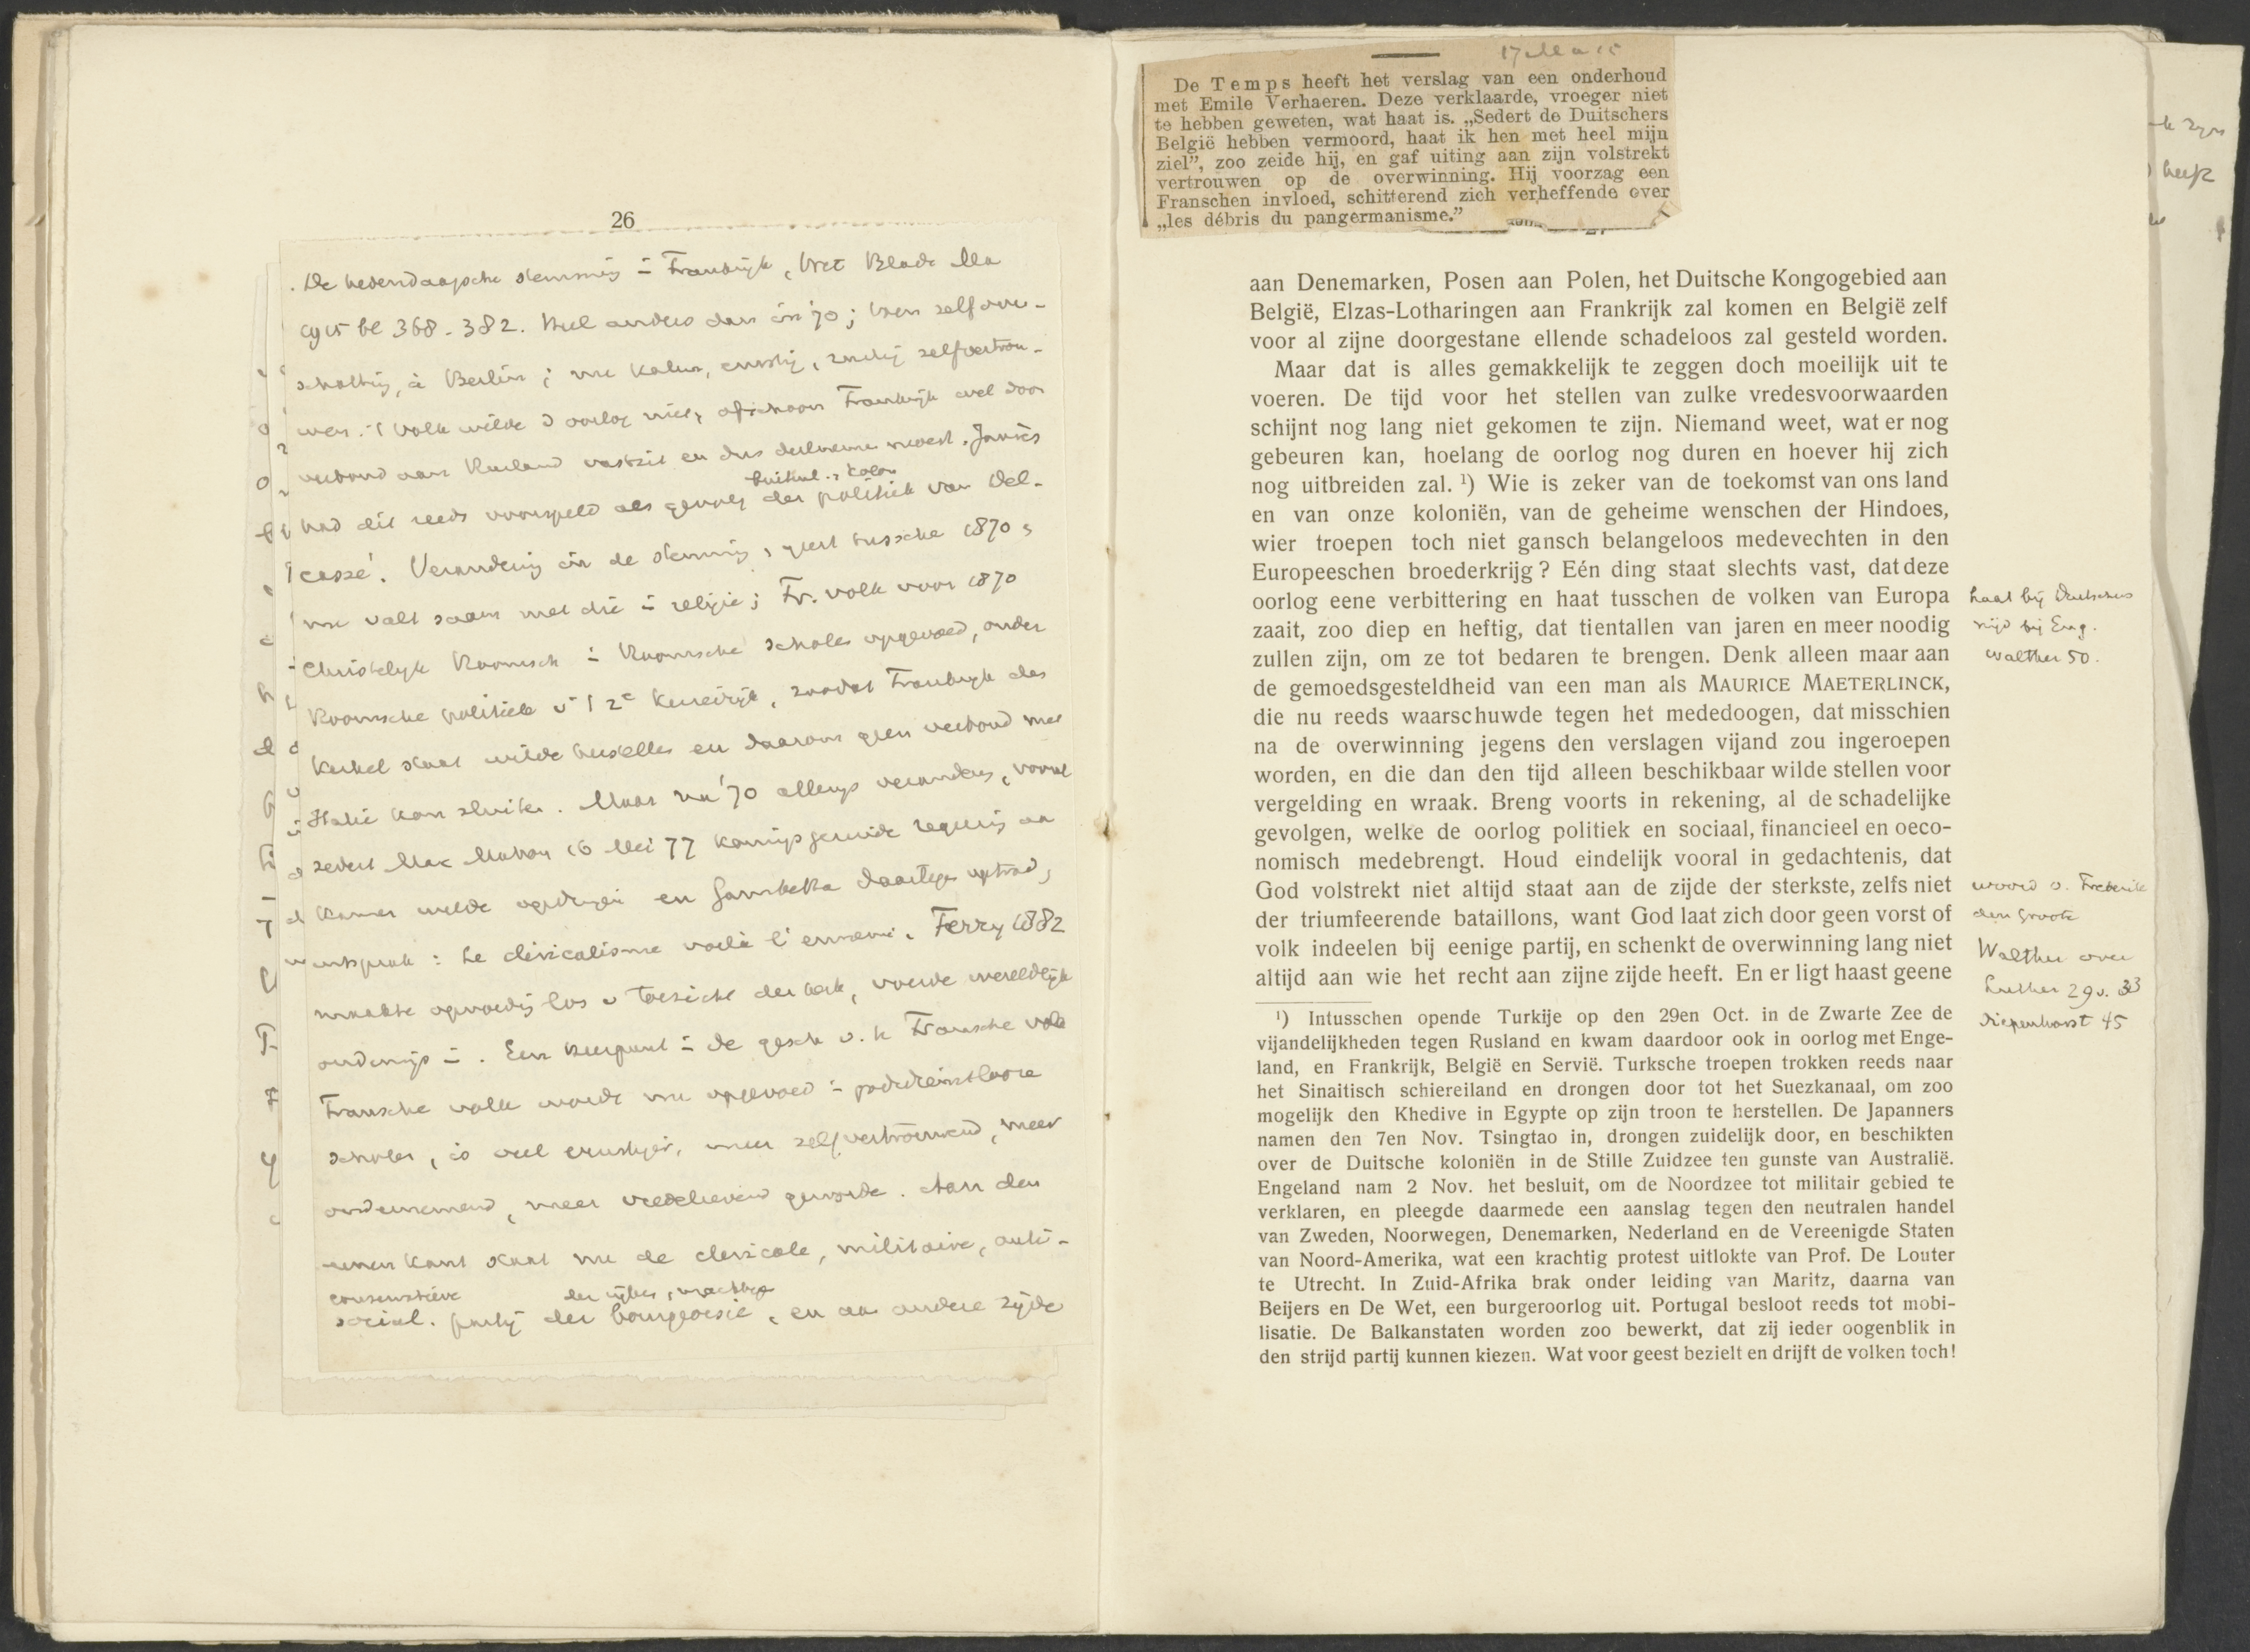 26
De hedendaagsche stemming in Frankrijk, Wet. Blade Ma
1915 bl 368-382. Heel anders dan in '70; toen zelfover-
schatting, à Berlin; nu kalm, ernstig, rustig zelfvertrou-
wen. 't Volk wilde d oorlog niet, ofschoon Frankrijk wel door
verbond aan Rusland vastzit en dus deelnemen moest. Jaurès
buitenl. , colon
had dit reeds voorspeld als gevolg der politiek van Del-
cassé. Verandering in de stemming, geest tussche 1870 ,
nu valt saam met die in religie; Fr. volk voor 1870
Christelijk Roomsch in Roomsche scholen opgevoed, onder
Roomsche politiek v 't 2e Keizerrijk, zoodat Frankrijk den
Kerkel staat wilde herstellen en daarom geen verbond met
Italië kon sluiten. Maar na '70 allengs veranderd, vooral
sedert Mac Mahon 16 Mei 77 koningsgezinde regering aan
Kamer wilde opdringen en Gambetta daartegen optrad,
uitsprak: Le cléricalisme voilà l'ennemi. Ferry 1882
maakte opvoeding los v toezicht der kerk, voerde wereldlijk
onderwijs in. Een keerpunt in de gesch v. h Fransche volk
Fransche volk werde nu opgevoed in godsdienstlooze
scholen, is veel ernstiger, meer zelfvertrouwend, meer
ondernemend, meer vredelievend geworde. Aan den
eenen kant staat nu de clericale, militaire, anti-
conservatieve der rijken, machtige
social. partij der bourgeoisie, en aan andere zijde
17 Mei 15
De Temps heeft het verslag van een onderhoud
met Emile Verhaeren. Deze verklaarde, vroeger niet
te hebben geweten, wat haat is. „Sedert de Duitschers
België hebben vermoord, haat ik hen met heel mijn
ziel”, zoo zeide hij, en gaf uiting aan zijn volstrekt
vertrouwen op de overwinning. Hij voorzag een
Franschen invloed, schitterend zich verheffende over
„les débris du pangermanisme.”
aan Denemarken, Posen aan Polen, het Duitsche Kongogebied aan
België, Elzas-Lotharingen aan Frankrijk zal komen en België zelf
voor al zijne doorgestane ellende schadeloos zal gesteld worden.
Maar dat is alles gemakkelijk te zeggen doch moeilijk uit te
voeren. De tijd voor het stellen van zulke vredesvoorwaarden
schijnt nog lang niet gekomen te zijn. Niemand weet, wat er nog
gebeuren kan, hoelang de oorlog nog duren en hoever hij zich
nog uitbreiden zal. ¹) Wie is zeker van de toekomst van ons land
en van onze koloniën, van de geheime wenschen der Hindoes,
wier troepen toch niet gansch belangeloos medevechten in den
Europeeschen broederkrijg? Eén ding staat slechts vast, dat deze
oorlog eene verbittering en haat tusschen de volken van Europa
zaait, zoo diep en heftig, dat tientallen van jaren en meer noodig
zullen zijn, om ze tot bedaren te brengen. Denk alleen maar aan
de gemoedsgesteldheid van een man als MAURICE MAETERLINCK,
die nu reeds waarschuwde tegen het mededoogen, dat misschien
na de overwinning jegens den verslagen vijand zou ingeroepen
worden, en die dan den tijd alleen beschikbaar wilde stellen voor
vergelding en wraak. Breng voorts in rekening, al de schadelijke
gevolgen, welke de oorlog politiek en sociaal, financieel en oeco-
nomisch medebrengt. Houd eindelijk vooral in gedachtenis, dat
God volstrekt niet altijd staat aan de zijde der sterkste, zelfs niet
der triumfeerende bataillons, want God laat zich door geen vorst of
volk indeelen bij eenige partij, en schenkt de overwinning lang niet
altijd aan wie het recht aan zijne zijde heeft. En er ligt haast geene
haat bij Duitschers
nijd bij Eng.
Walther 50.
woord v. Frederik
den Groote
Walther over
Luther 29 v. 33
Diepenhorst 45
¹) Intusschen opende Turkije op den 29en Oct. in de Zwarte Zee de
vijandelijkheden tegen Rusland en kwam daardoor ook in oorlog met Enge-
land, en Frankrijk, België en Servië. Turksche troepen trokken reeds naar
het Sinaitisch schiereiland en drongen door tot het Suezkanaal, om zoo
mogelijk den Khedive in Egypte op zijn troon te herstellen. De Japanners
namen den 7en Nov. Tsingtao in, drongen zuidelijk door, en beschikten
over de Duitsche koloniën in de Stille Zuidzee ten gunste van Australië.
Engeland nam 2 Nov. het besluit, om de Noordzee tot militair gebied te
verklaren, en pleegde daarmede een aanslag tegen den neutralen handel
van Zweden, Noorwegen, Denemarken, Nederland en de Vereenigde Staten
van Noord-Amerika, wat een krachtig protest uitlokte van Prof. De Louter
te Utrecht. In Zuid-Afrika brak onder leiding van Maritz, daarna van
Beijers en De Wet, een burgeroorlog uit. Portugal besloot reeds tot mobi-
lisatie. De Balkanstaten worden zoo bewerkt, dat zij ieder oogenblik in
den strijd partij kunnen kiezen. Wat voor geest bezielt en drijft de volken toch!